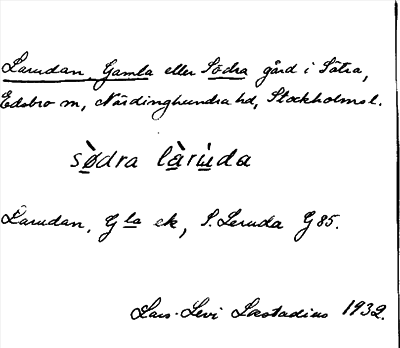 Larudan, Gamla eller Södra gård i Sätra,
Edsbro sn, Närdinghundra hd, Stockholms l.
sø̀dra là̱rù̱da
Larudan, G la ek, S. Leruda G 85.
Lars-Levi Læstadius 1932.